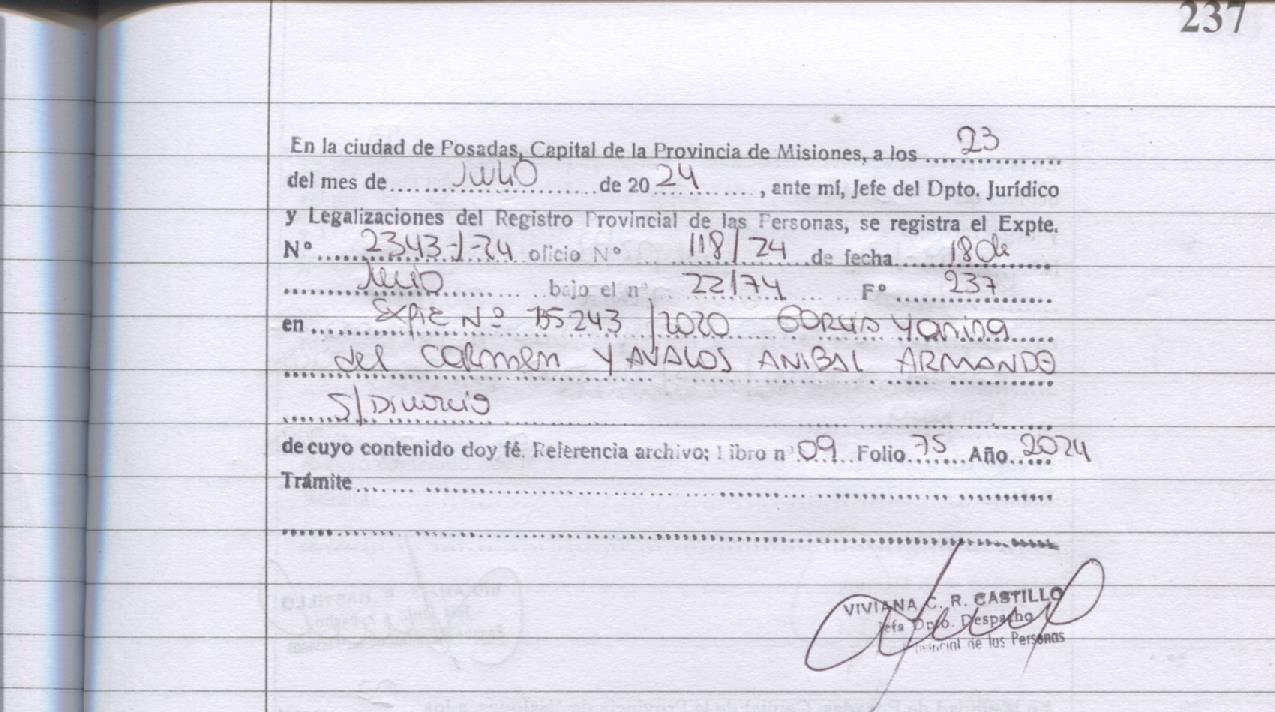 237
En la ciudad de Posadas, Capital de la Provincia de Misiones, a los 23
del mes de JULIO de 2024, ante mí, Jefe del Dpto. Jurídico
y Legalizaciones del Registro Provincial de las Personas, se registra el Expte.
N° 2343-/-24 oficio N° 118/24 de fecha 18 de
Julio bajo el n° 22/74 F° 237
en Expte Nº 155243/2020 Yanina
del Carmen Y AVALOS ANIBAL ARMANDO
S/Divorcio
de cuyo contenido doy fé. Referencia archivo; Libro n° 09 Folio 75 Año 2024
Trámite
VIVIANA C. R. CASTILLO
Jefa Dpto. Despacho
Provincial de las Personas